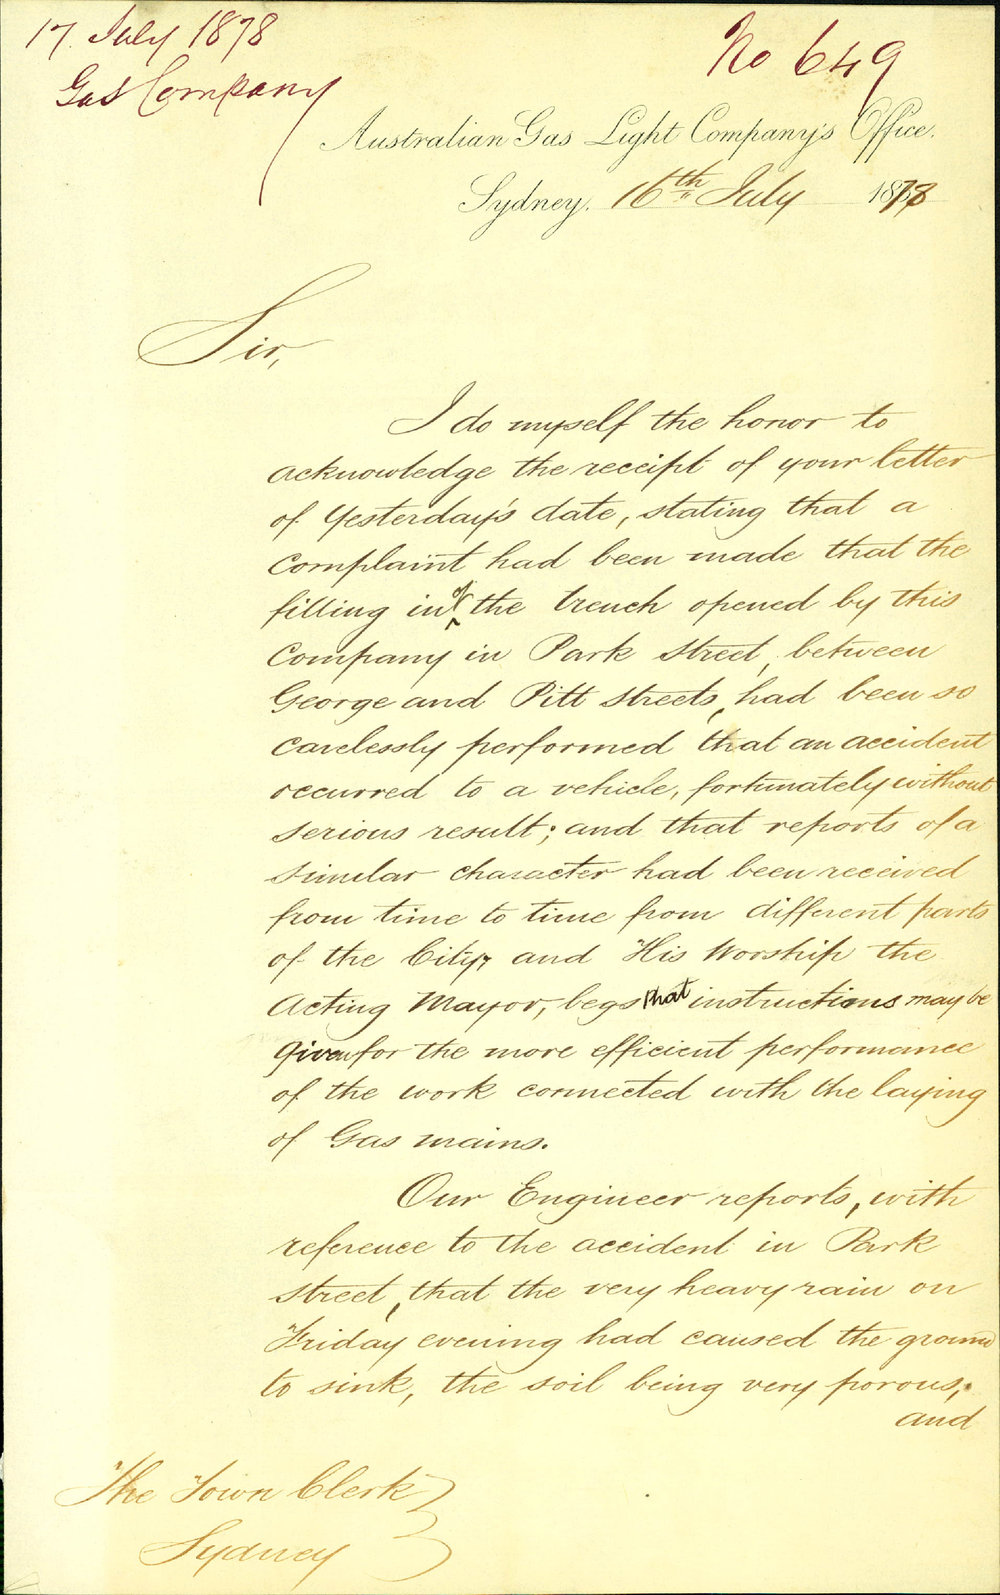 17 July 1878
No 649
Gas Company
Australian Gas Light Company's Office.
Sydney, 16th July 1878
Sir,
I do myself the honor to
acknowledge the receipt of your letter
of Yesterday's date, stating that a
complaint had been made that the
filling in of the trench opened by this
Company in Park Street, between
George and Pitt Streets, had been so
carelessly performed that an accident
occurred to a vehicle, fortunately without
serious result; and that reports of a
similar character had been received
from time to time from different parts
of the City, and His Worship the
Acting Mayor, begs that instructions may be
given for the more efficient performance
of the work connected with the laying
of Gas mains.
Our Engineer reports, with
reference to the accident in Park
Street, that the very heavy rain on
Friday evening had caused the ground
to sink, the soil being very porous,
and
The Town Clerk
Sydney